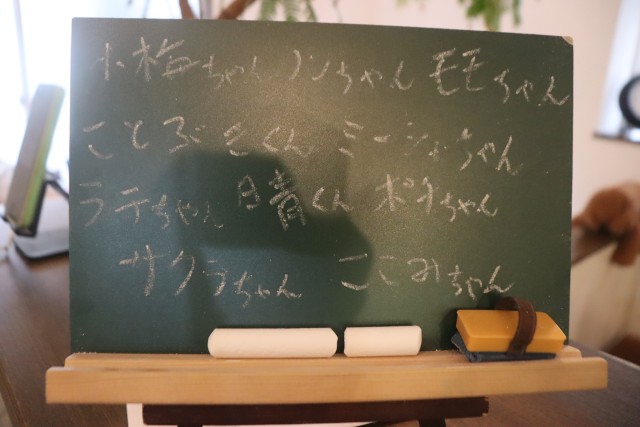 小梅ちゃん ノンちゃん モモちゃん
ことぶきくん ミーシャちゃん
ラテちゃん 日青くん ポチちゃん
サクラちゃん ここみちゃん